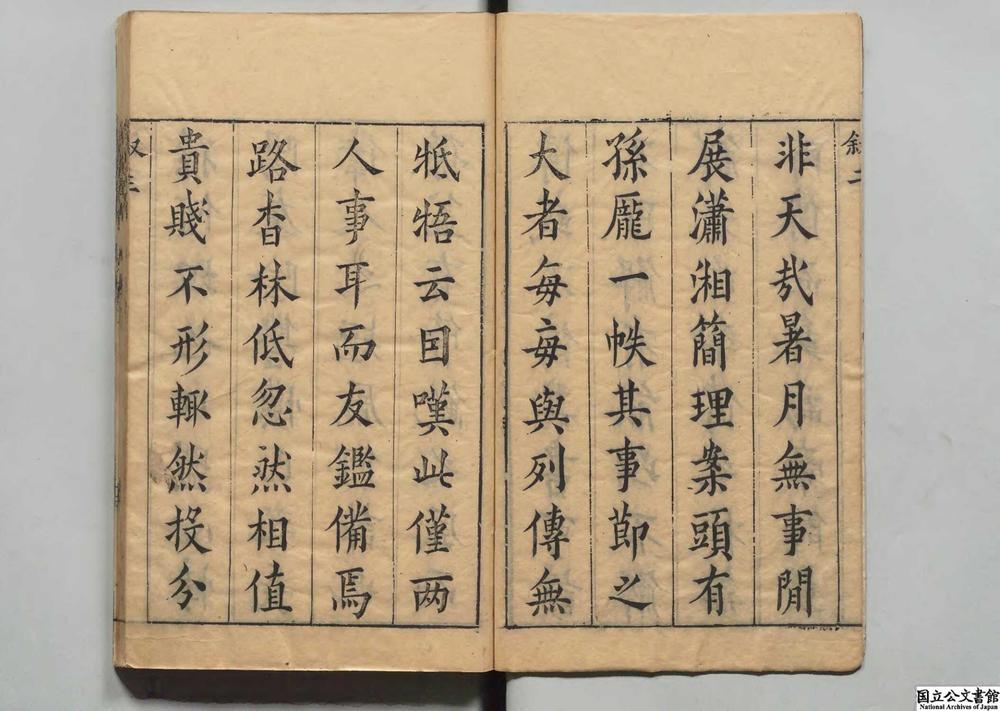 叙二
非天哉暑月無事閒
展瀟湘簡理案頭有
孫龐一帙其事節之
大者每每與列傳無
牴牾云因嘆此僅两
人事耳而友鑑備焉
路杳林低忽然相值
貴賤不形輒然投分
叙三
国立公文書館
National Archives of Japan